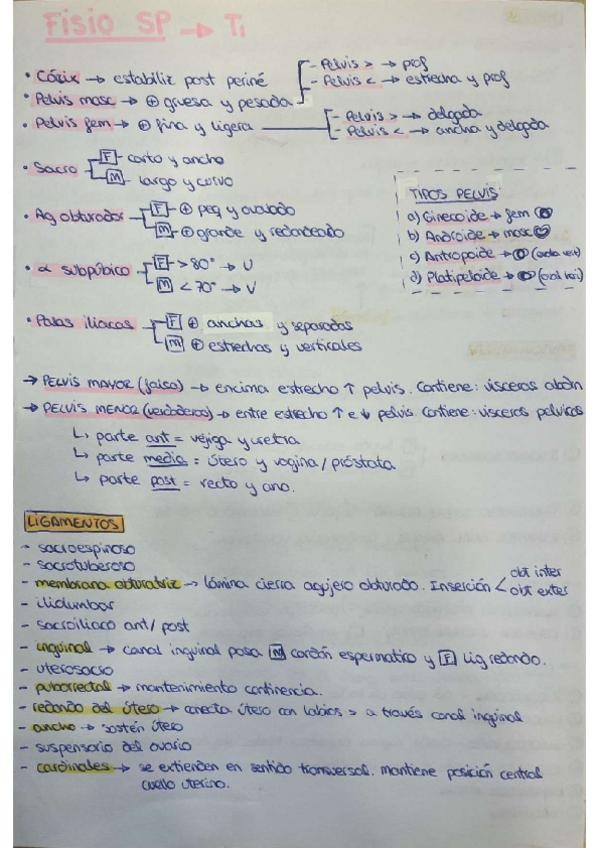 Fisio SP → T1
• Cóxix → estabiliz post periné
- Pelvis > → prof
- Pelvis < → estrecha y prof
• Pelvis masc → ⊕ gruesa y pesada
• Pelvis fem → ⊕ fina y ligera
- Pelvis > → delgada
- Pelvis < → ancha y delgada
• Sacro
F - corto y ancho
M - largo y curvo
• Ag obturador
F - ⊕ peq y ovalado
M - ⊕ grande y redondeado
• α subpúbico
F - > 80° → U
M < 70° → V
• Palas ilíacas
F ⊕ anchas y separadas
M ⊕ estrechas y verticales
TIPOS PELVIS:
a) Ginecoide → fem
b) Androide → masc
c) Antropoide →
d) Platipeloide → (oval hori)
→ PELVIS MAYOR (falsa) → encima estrecho ↑ pelvis. Contiene: vísceras abdm
→ PELVIS MENOR (verdadera) → entre estrecho ↑ e ↓ pelvis. Contiene: vísceras pélvicas
↳ parte ant = vejiga y uretra
↳ parte media = útero y vagina / próstata
↳ parte post = recto y ano.
LIGAMENTOS
- sacroespinoso
- sacrotuberoso
- membrana obturatriz → lámina cierra agujero obturado. Inserción < obt inter
obt exter
- iliolumbar
- sacroiliaco ant / post
- inguinal → canal inguinal pasa M cordón espermatico y F Lig redondo.
- uterosacro
- puborrectal → mantenimiento continencia.
- redondo del útero → conecta útero con labios > a través canal inguinal
- ancho → sostén útero
- suspensorio del ovario
- cardinales → se extienden en sentido transversal. mantiene posición central
cuello uterino.